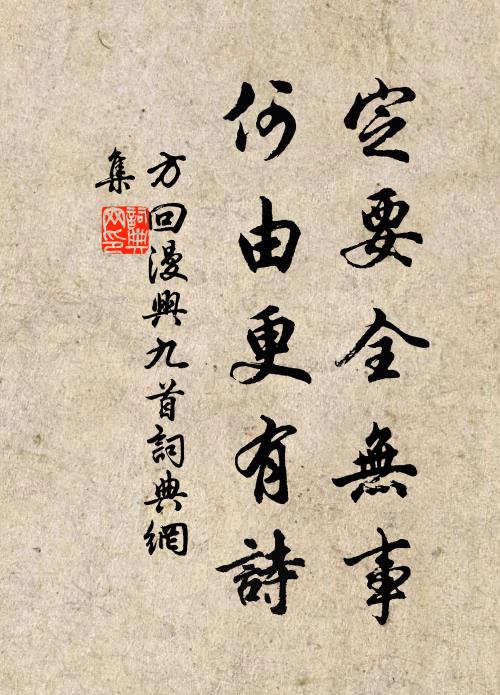 定要全無事
何由更有詩
方回漫興九首詞典網
集
詞典網印